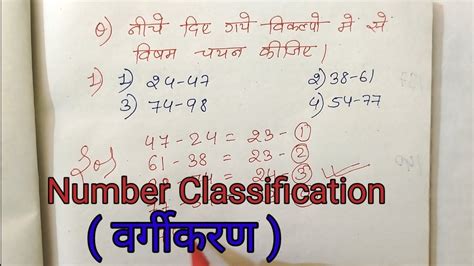 Q) नीचे दिए गये विकल्पो में से
विषम चयन कीजिए।
1) 1) 24-47 2) 38-61
3) 74-98 4) 54-77
Sol 47-24 = 23-①
61-38 = 23-②
= 24-③
Number Classification
( वर्गीकरण )